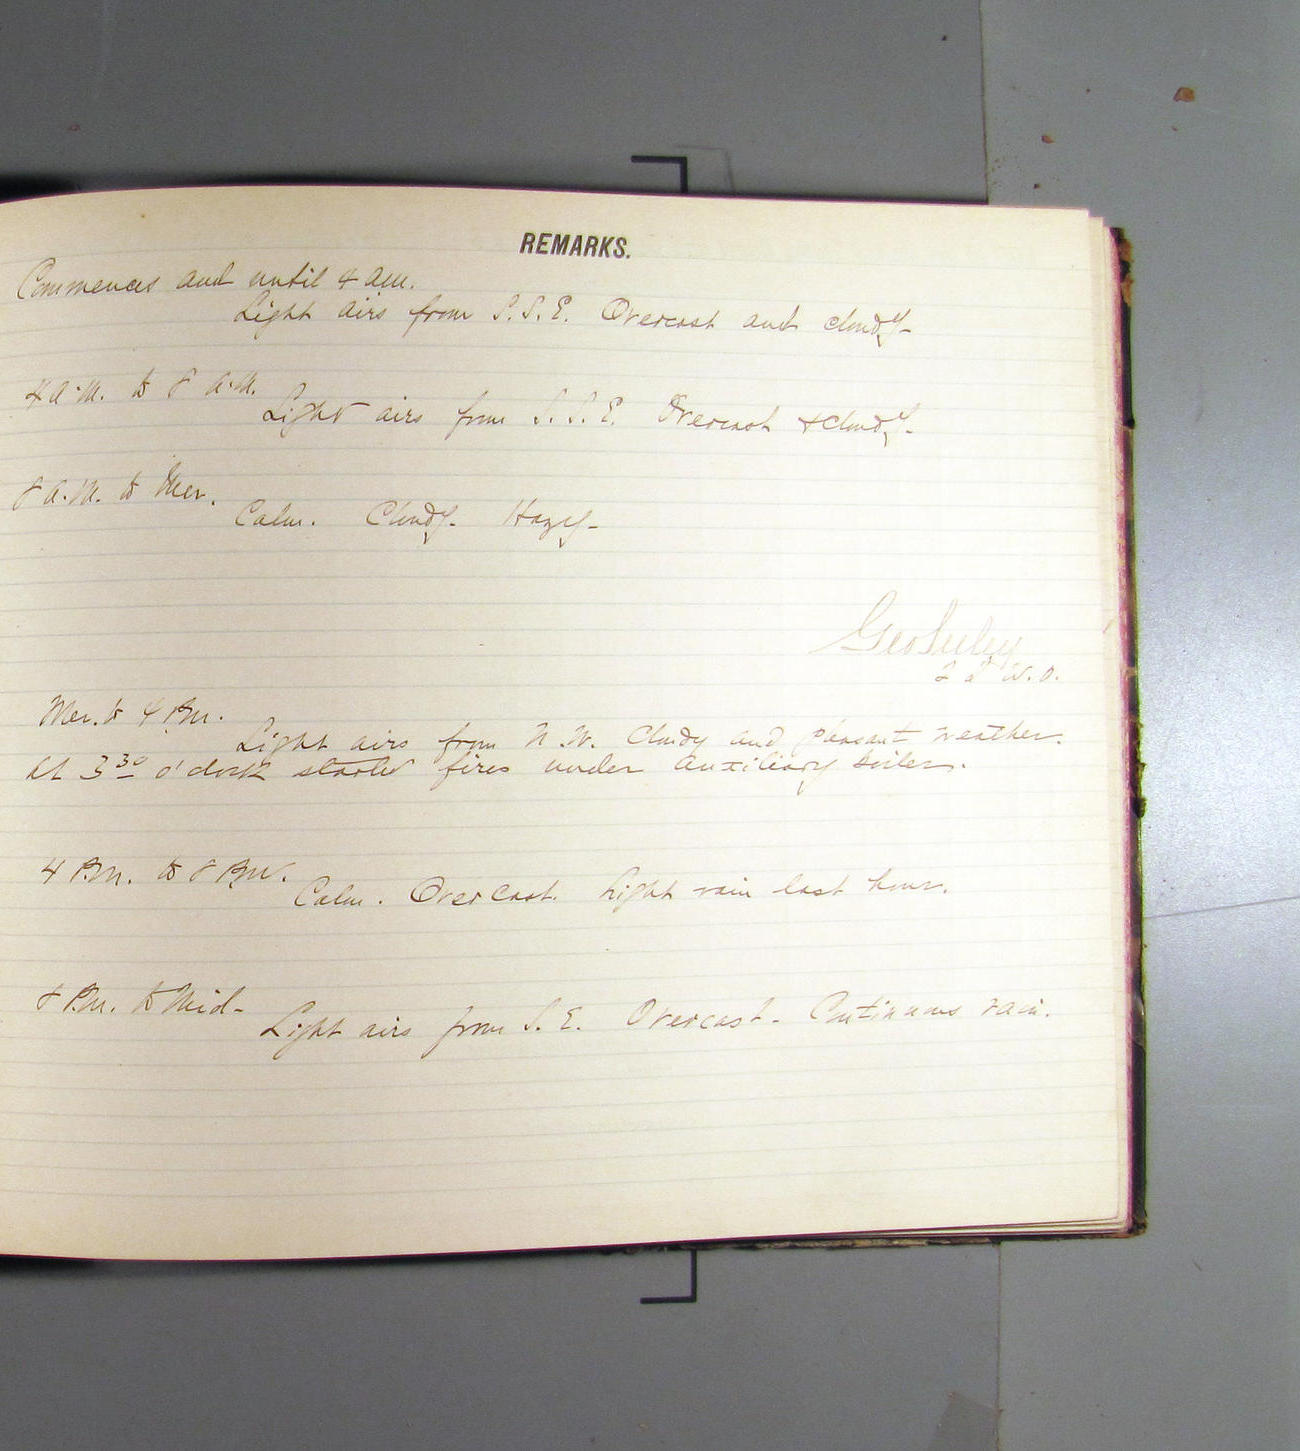 REMARKS.
Commences and until 4 am.
Light airs from S.S.E. Overcast and cloudy-
4 A.M. to 8 A.M.
Light airs from S.S.E. Overcast & cloudy-
8 A.M. to Mer.
Calm. Cloudy- Hazy-
Geo Seeley
2d W.O.
Mer. to 4 P.M.
Light airs from N.W. Cloudy and pleasant weather.
At 3 30 o'clock started fires under auxiliary boiler.
4 P.M. to 8 P.M.
Calm. Overcast. Light rain last hour.
8 P.M. to Mid-
Light airs from S.E. Overcast- Continuous rain.